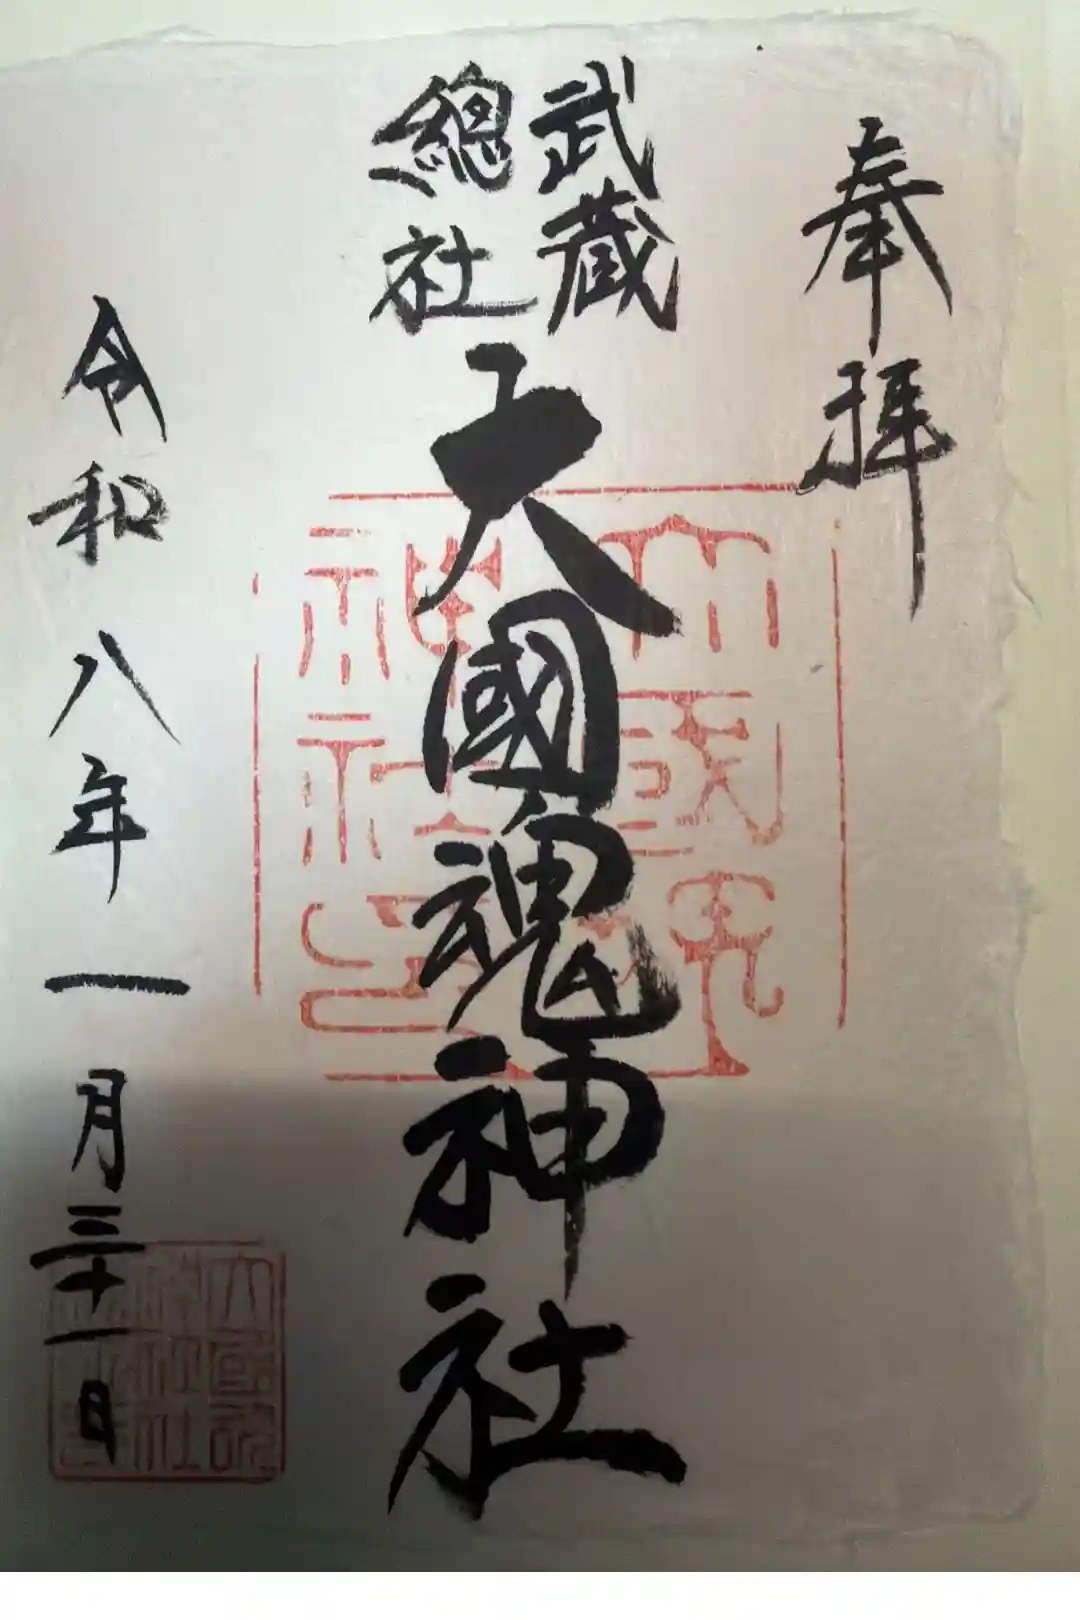 奉拝
武蔵
總社
大國魂神社
令和八年一月三十一日